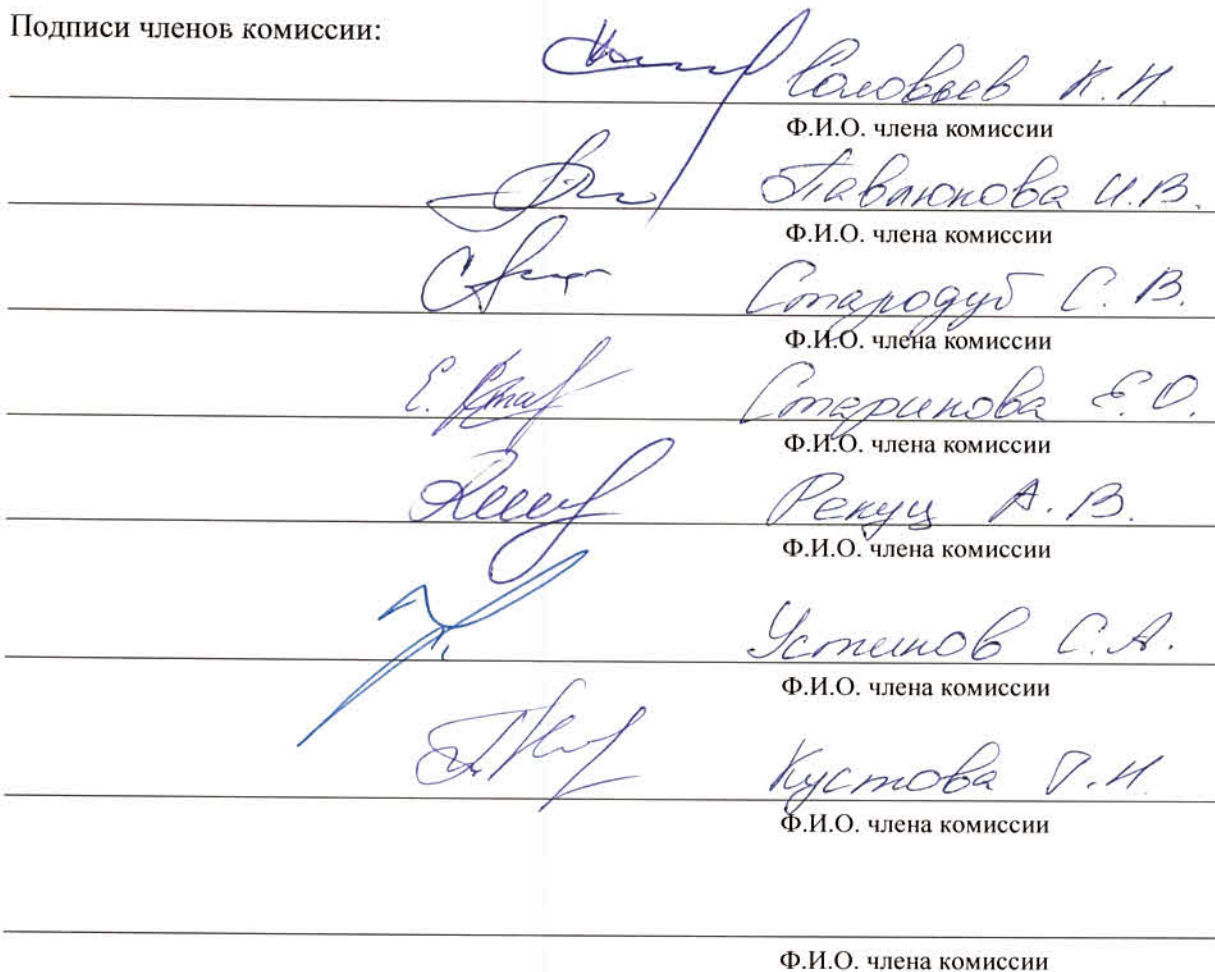 Подписи членов комиссии:
Соловьев К.Н.
Ф.И.О. члена комиссии
Павлюкова И.В.
Ф.И.О. члена комиссии
Стародуб С.В.
Ф.И.О. члена комиссии
Старинова Е.О.
Ф.И.О. члена комиссии
Рекуц А.В.
Ф.И.О. члена комиссии
Устинов С.А.
Ф.И.О. члена комиссии
Кустова Т.Н.
Ф.И.О. члена комиссии
Ф.И.О. члена комиссии